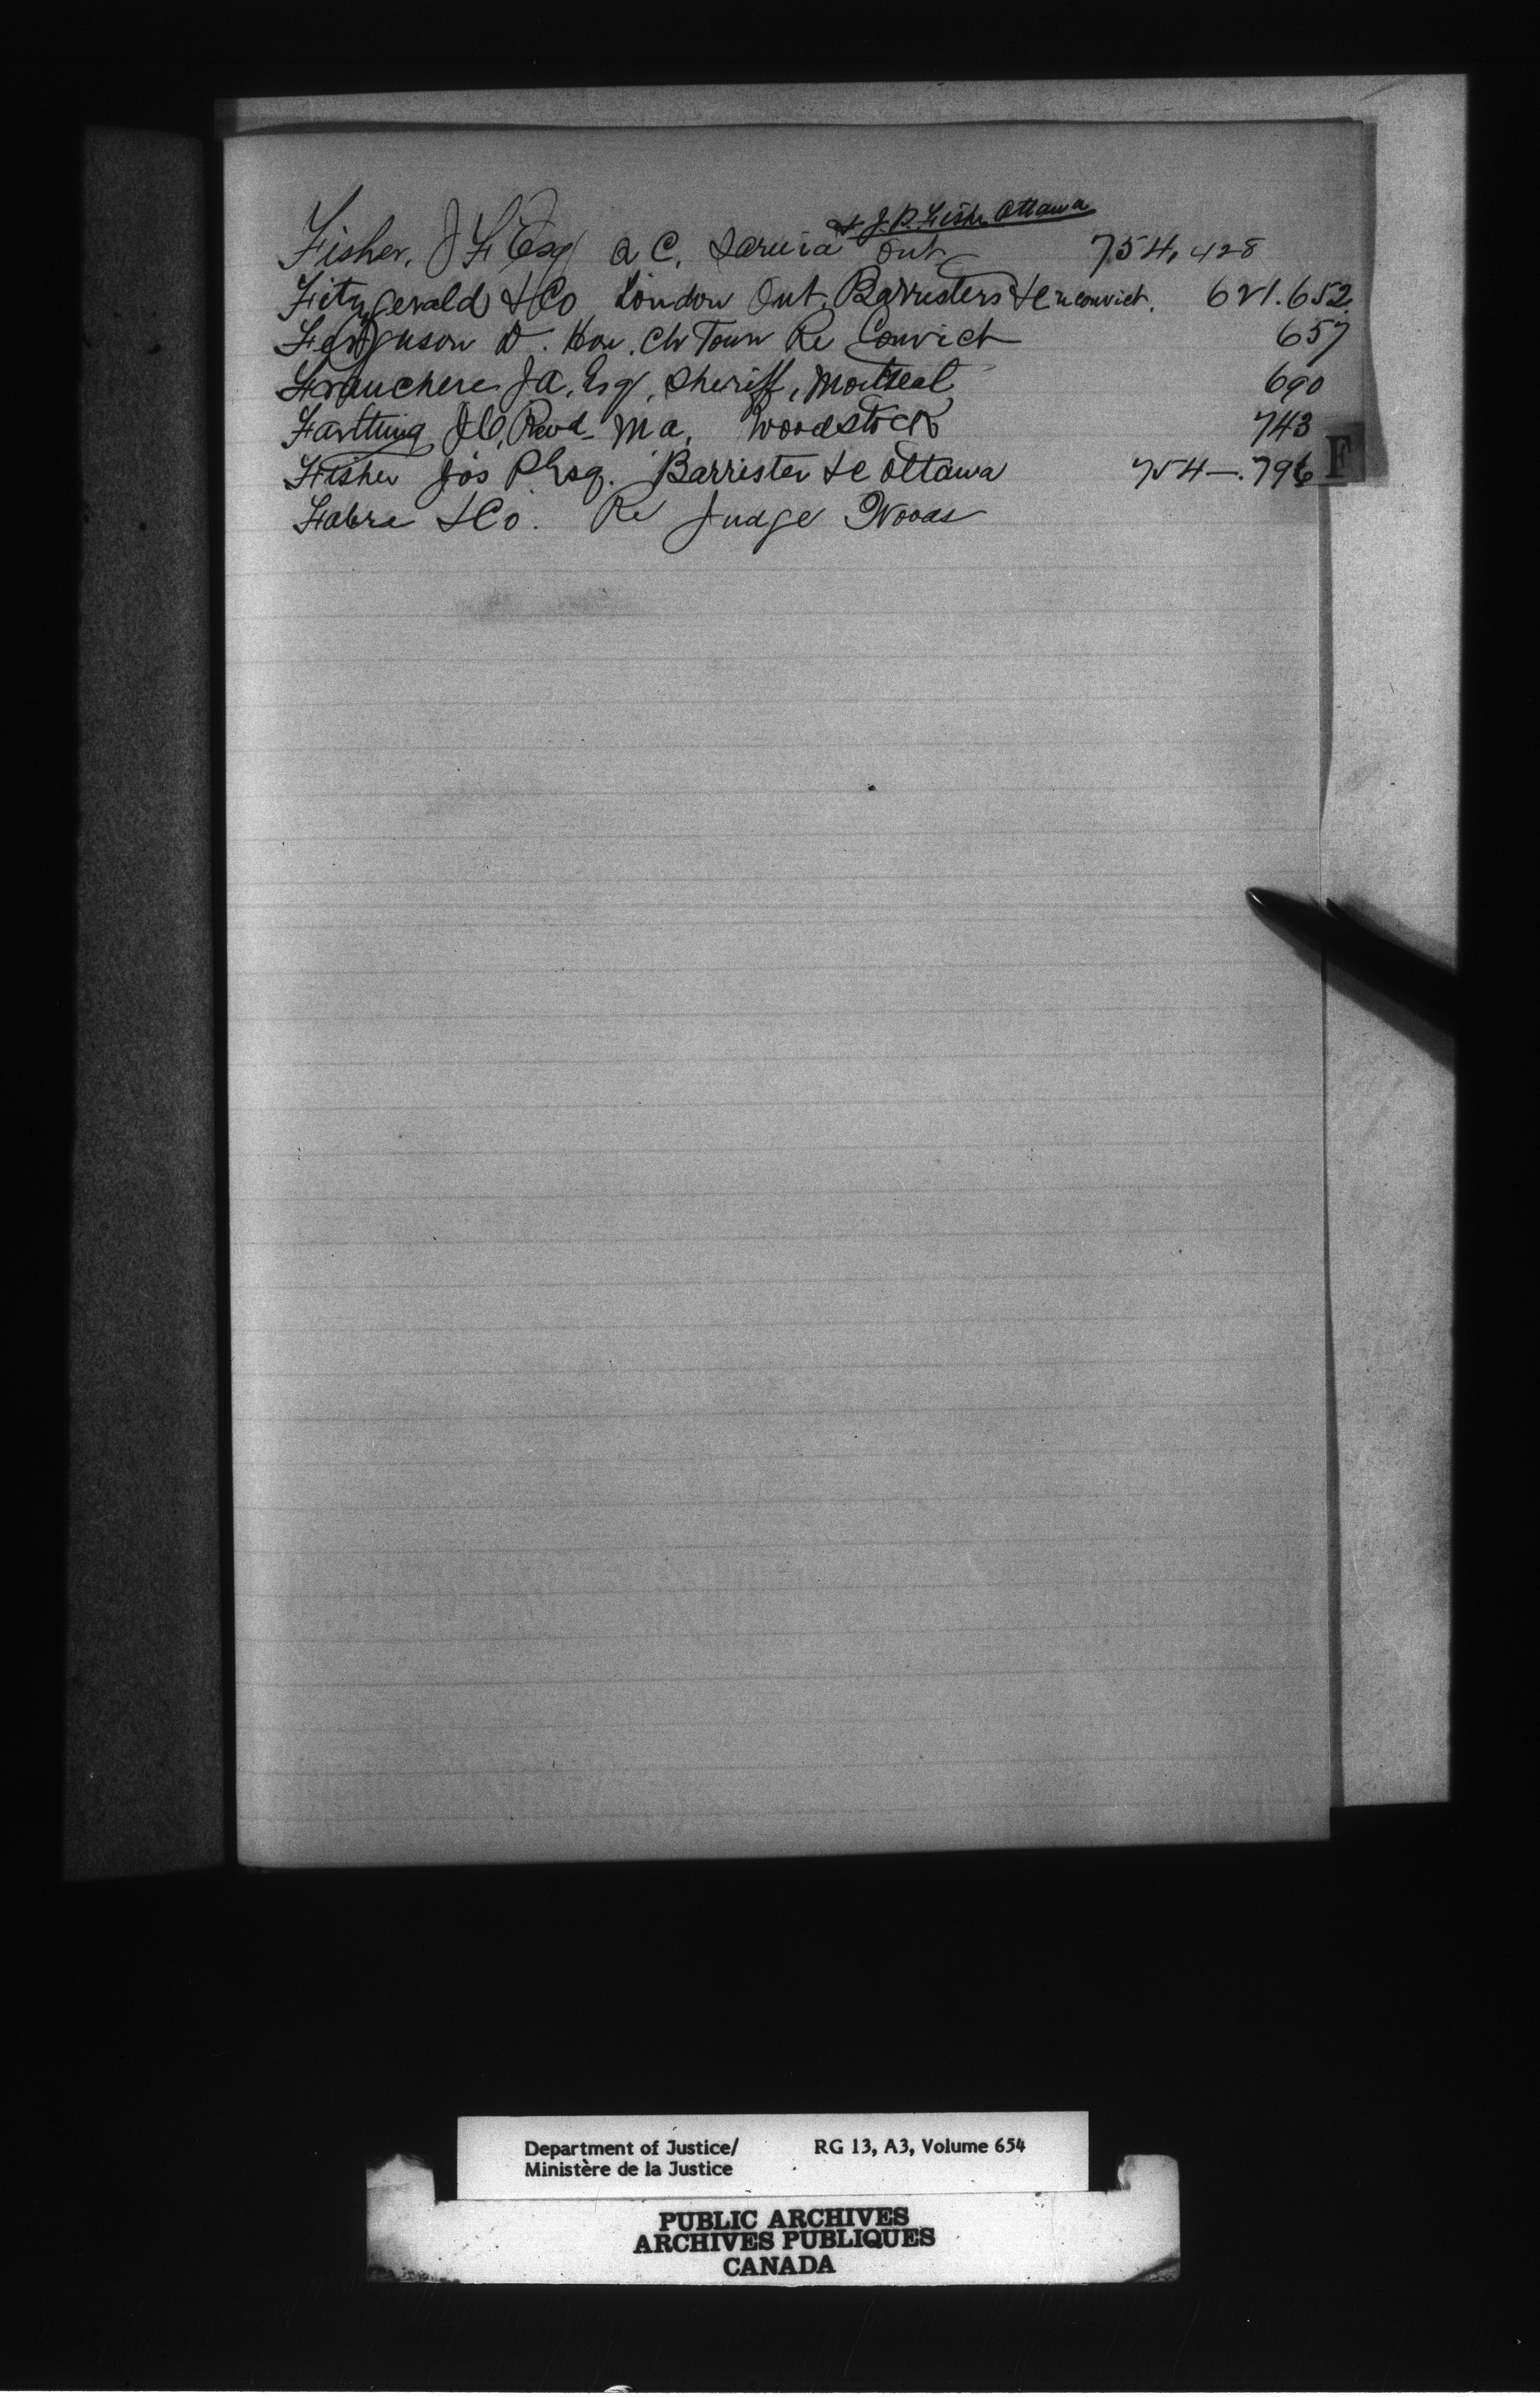 & J.P. Fisher Ottawa
Fisher, J F Esq Q C, Sarnia Ont 754, 428
Fitzgerald & Co London Ont. Barristers &c re convict. 621. 652
Ferguson D. Hon. Ch Town Re Convict 657
Franchere J A, Esq, Sheriff, Montreal 690
Farthing J C, Revd M a, Woodstock 743
Fisher Jos P Esq. Barrister &c Ottawa 754 —. 796
F
Fabre & Co. Re Judge Woods
Department of Justice/ RG 13, A3, Volume 654
Ministère de la Justice
PUBLIC ARCHIVES
ARCHIVES PUBLIQUES
CANADA